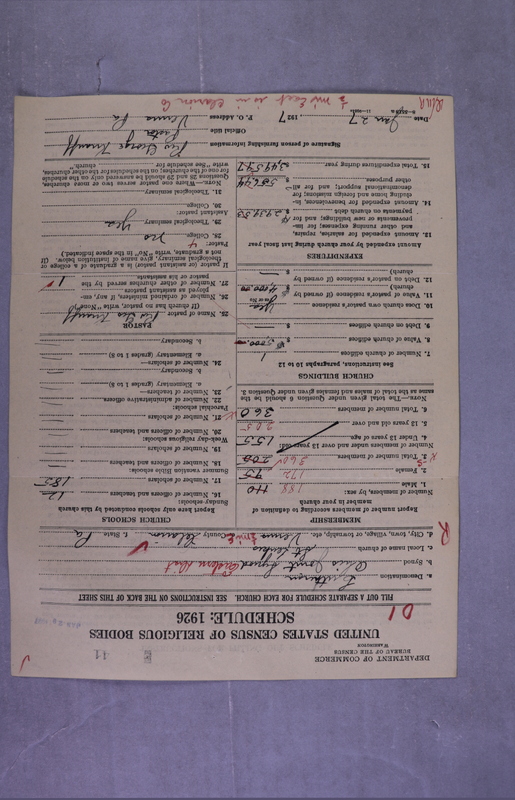 DEPARTMENT OF COMMERCE
BUREAU OF THE CENSUS
WASHINGTON
11
UNITED STATES CENSUS OF RELIGIOUS BODIES
SCHEDULE: 1926
D1
FILL OUT A SEPARATE SCHEDULE FOR EACH CHURCH. SEE INSTRUCTIONS ON THE BACK OF THIS SHEET
a. Denomination Lutheran
b. Synod Ohio Joint Synod Eastern Dist
c. Local name of church St
d. City, town, village, or township, etc. County Clarion State Pa
R
MEMBERSHIP
Report number of members according to definition of member in your church
Number of members, by sex:
1. Male 188 110
2. Female 172 95
3. Total number of members 360 205
Number of members under and over 13 years old:
4. Under 13 years of age 155
5. 13 years old and over 205
6. Total number of members 360
NOTE.—The total given under Question 6 should be the same as the total of males and females given under Question 3.
CHURCH BUILDINGS
See instructions, paragraphs 10 to 12
7. Number of church edifices 1
8. Value of church edifices $
9. Debt on church edifices $ —
10. Does church own pastor's residence yes
Yes or No
11. Value of pastor's residence (if owned by church) $
12. Debt on pastor's residence (if owned by church) $ —
EXPENDITURES
Amount expended by your church during last fiscal year
13. Amount expended for salaries, repairs, and other running expenses; for improvements or new buildings; and for payments on church debt $
14. Amount expended for benevolences, including home and foreign missions; for denominational support; and for all other purposes $
15. Total expenditures during year $
CHURCH SCHOOLS
Report here only schools conducted by this church
Sunday schools:
16. Number of officers and teachers 12
17. Number of scholars 185
Summer vacation Bible schools:
18. Number of officers and teachers
19. Number of scholars
Week-day religious schools:
20. Number of officers and teachers
21. Number of scholars
Parochial schools:
22. Number of administrative officers
23. Number of teachers—
a. Elementary (grades 1 to 8)
b. Secondary
24. Number of scholars—
a. Elementary (grades 1 to 8)
b. Secondary
PASTOR
25. Name of pastor Rev Geo
(If church has no pastor, write "None")
26. Number of ordained ministers, if any, employed as assistant pastors
27. Number of other churches served by the pastor or his assistants 1
If pastor (or assistant pastor) is a graduate of a college or theological seminary, give name of institution below. (If not a graduate, write "No" in the space indicated.)
Pastor:
28. College no
29. Theological seminary yes
Assistant pastor:
30. College
31. Theological seminary
NOTE.—Where one pastor serves two or more churches, Questions 28 and 29 should be answered only on the schedule for one of the churches; on the schedules for the other churches, write "See schedule for church."
Signature of person furnishing information Rev George
Official title Pastor
P. O. Address Pa
Date Jan 27 1927
E in Clarion Co